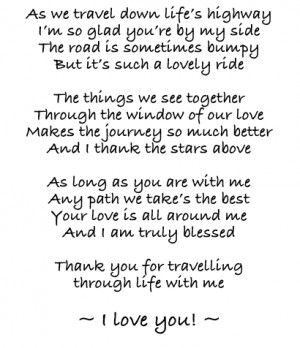 As we travel down life's highway
I'm so glad you're by my side
The road is sometimes bumpy
But it's such a lovely ride
The things we see together
Through the window of our love
Makes the journey so much better
And I thank the stars above
As long as you are with me
Any path we take's the best
Your love is all around me
And I am truly blessed
Thank you for travelling
through life with me
~ I love you! ~